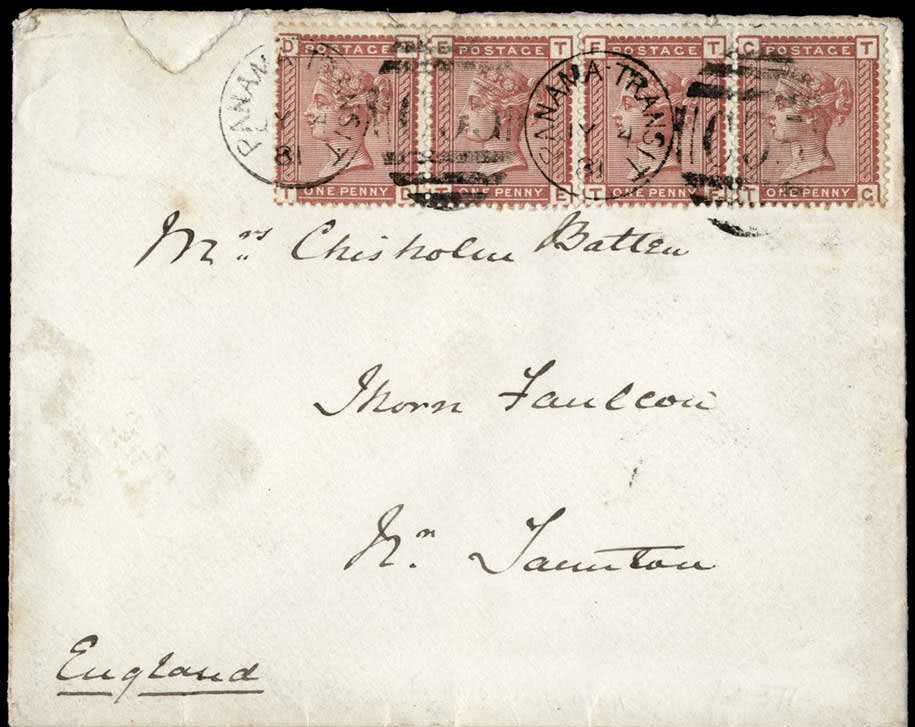 POSTAGE POSTAGE POSTAGE POSTAGE
PANAMA-TRANSIT PANAMA-TRANSIT
ONE PENNY ONE PENNY ONE PENNY ONE PENNY
Mrs Chisholm Batten
Thorn Faulcon
Nr Taunton
England